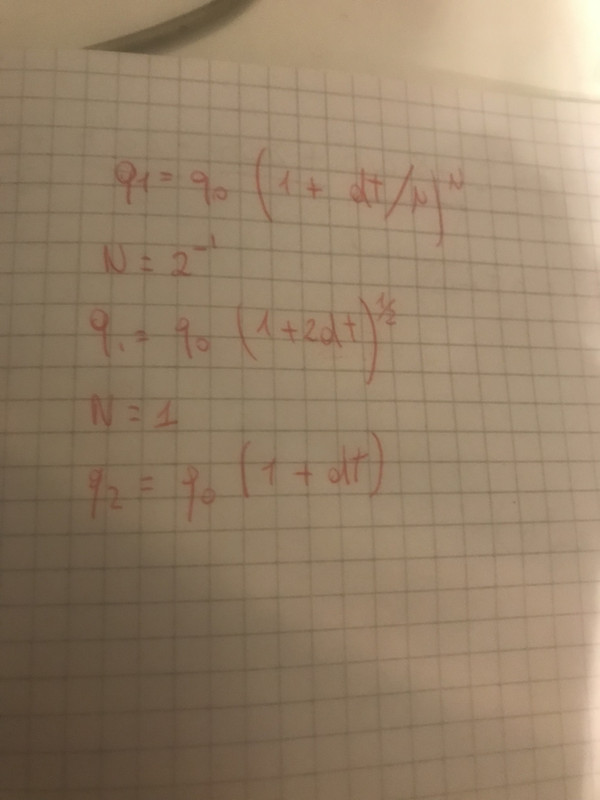 q1 = q0 (1 + dt/N)^N
N = 2^-1
q1 = q0 (1+2dt)^1/2
N = 1
q2 = q0 (1 + dt)